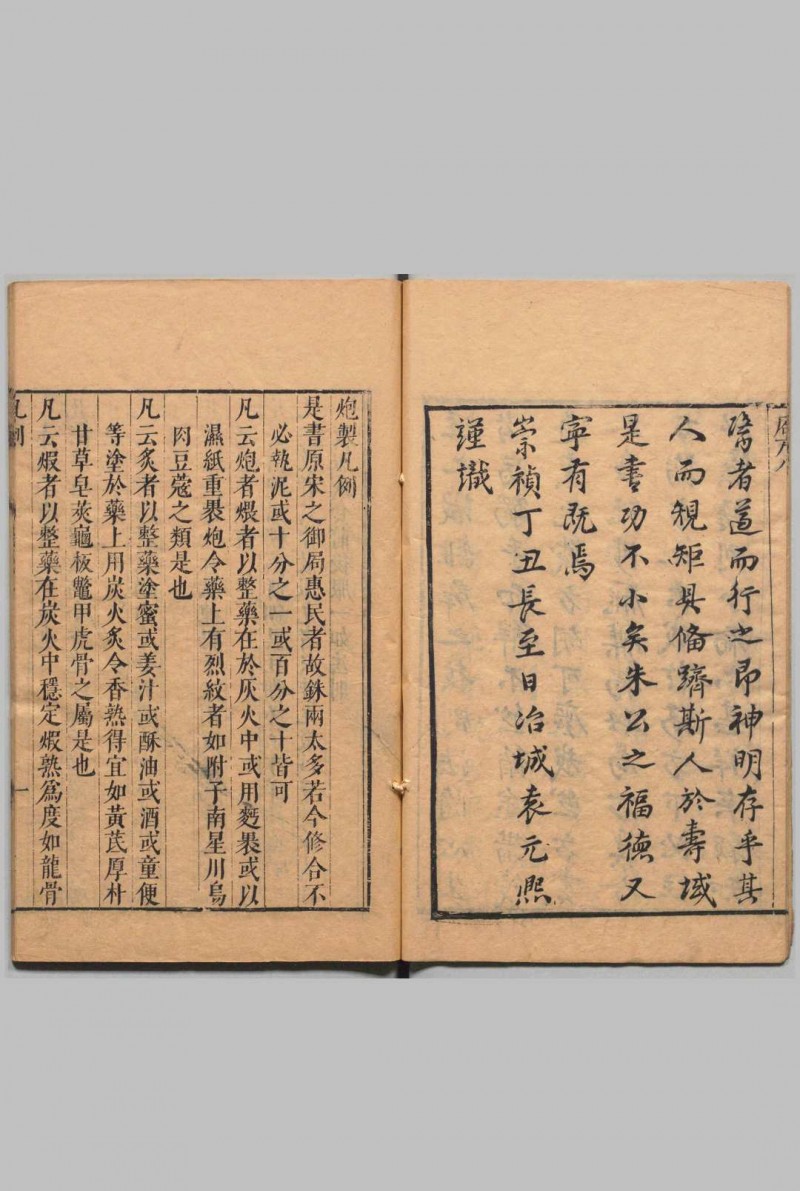 醫者遵而行之即神明存乎其
人而規矩具備躋斯人於壽域
是書功不小矣朱公之福德又
寧有既焉
崇禎丁丑長至日冶城袁元熙
謹識
炮製凡例
是書原宋之御局惠民者故銖兩太多若今修合不
必執泥或十分之一或百分之十皆可
凡云炮者煨者以整藥在於灰火中或用麪裹或以
濕紙重裹炮令藥上有烈紋者如附子南星川烏
肉豆蔻之類是也
凡云炙者以整藥塗蜜或姜汁或酥油或酒或童便
等塗於藥上用炭火炙令香熟得宜如黃芪厚朴
甘草皂莢龜板鼈甲虎骨之屬是也
凡云煆者以整藥在炭火中穩定煆熟爲度如龍骨
凡例
一